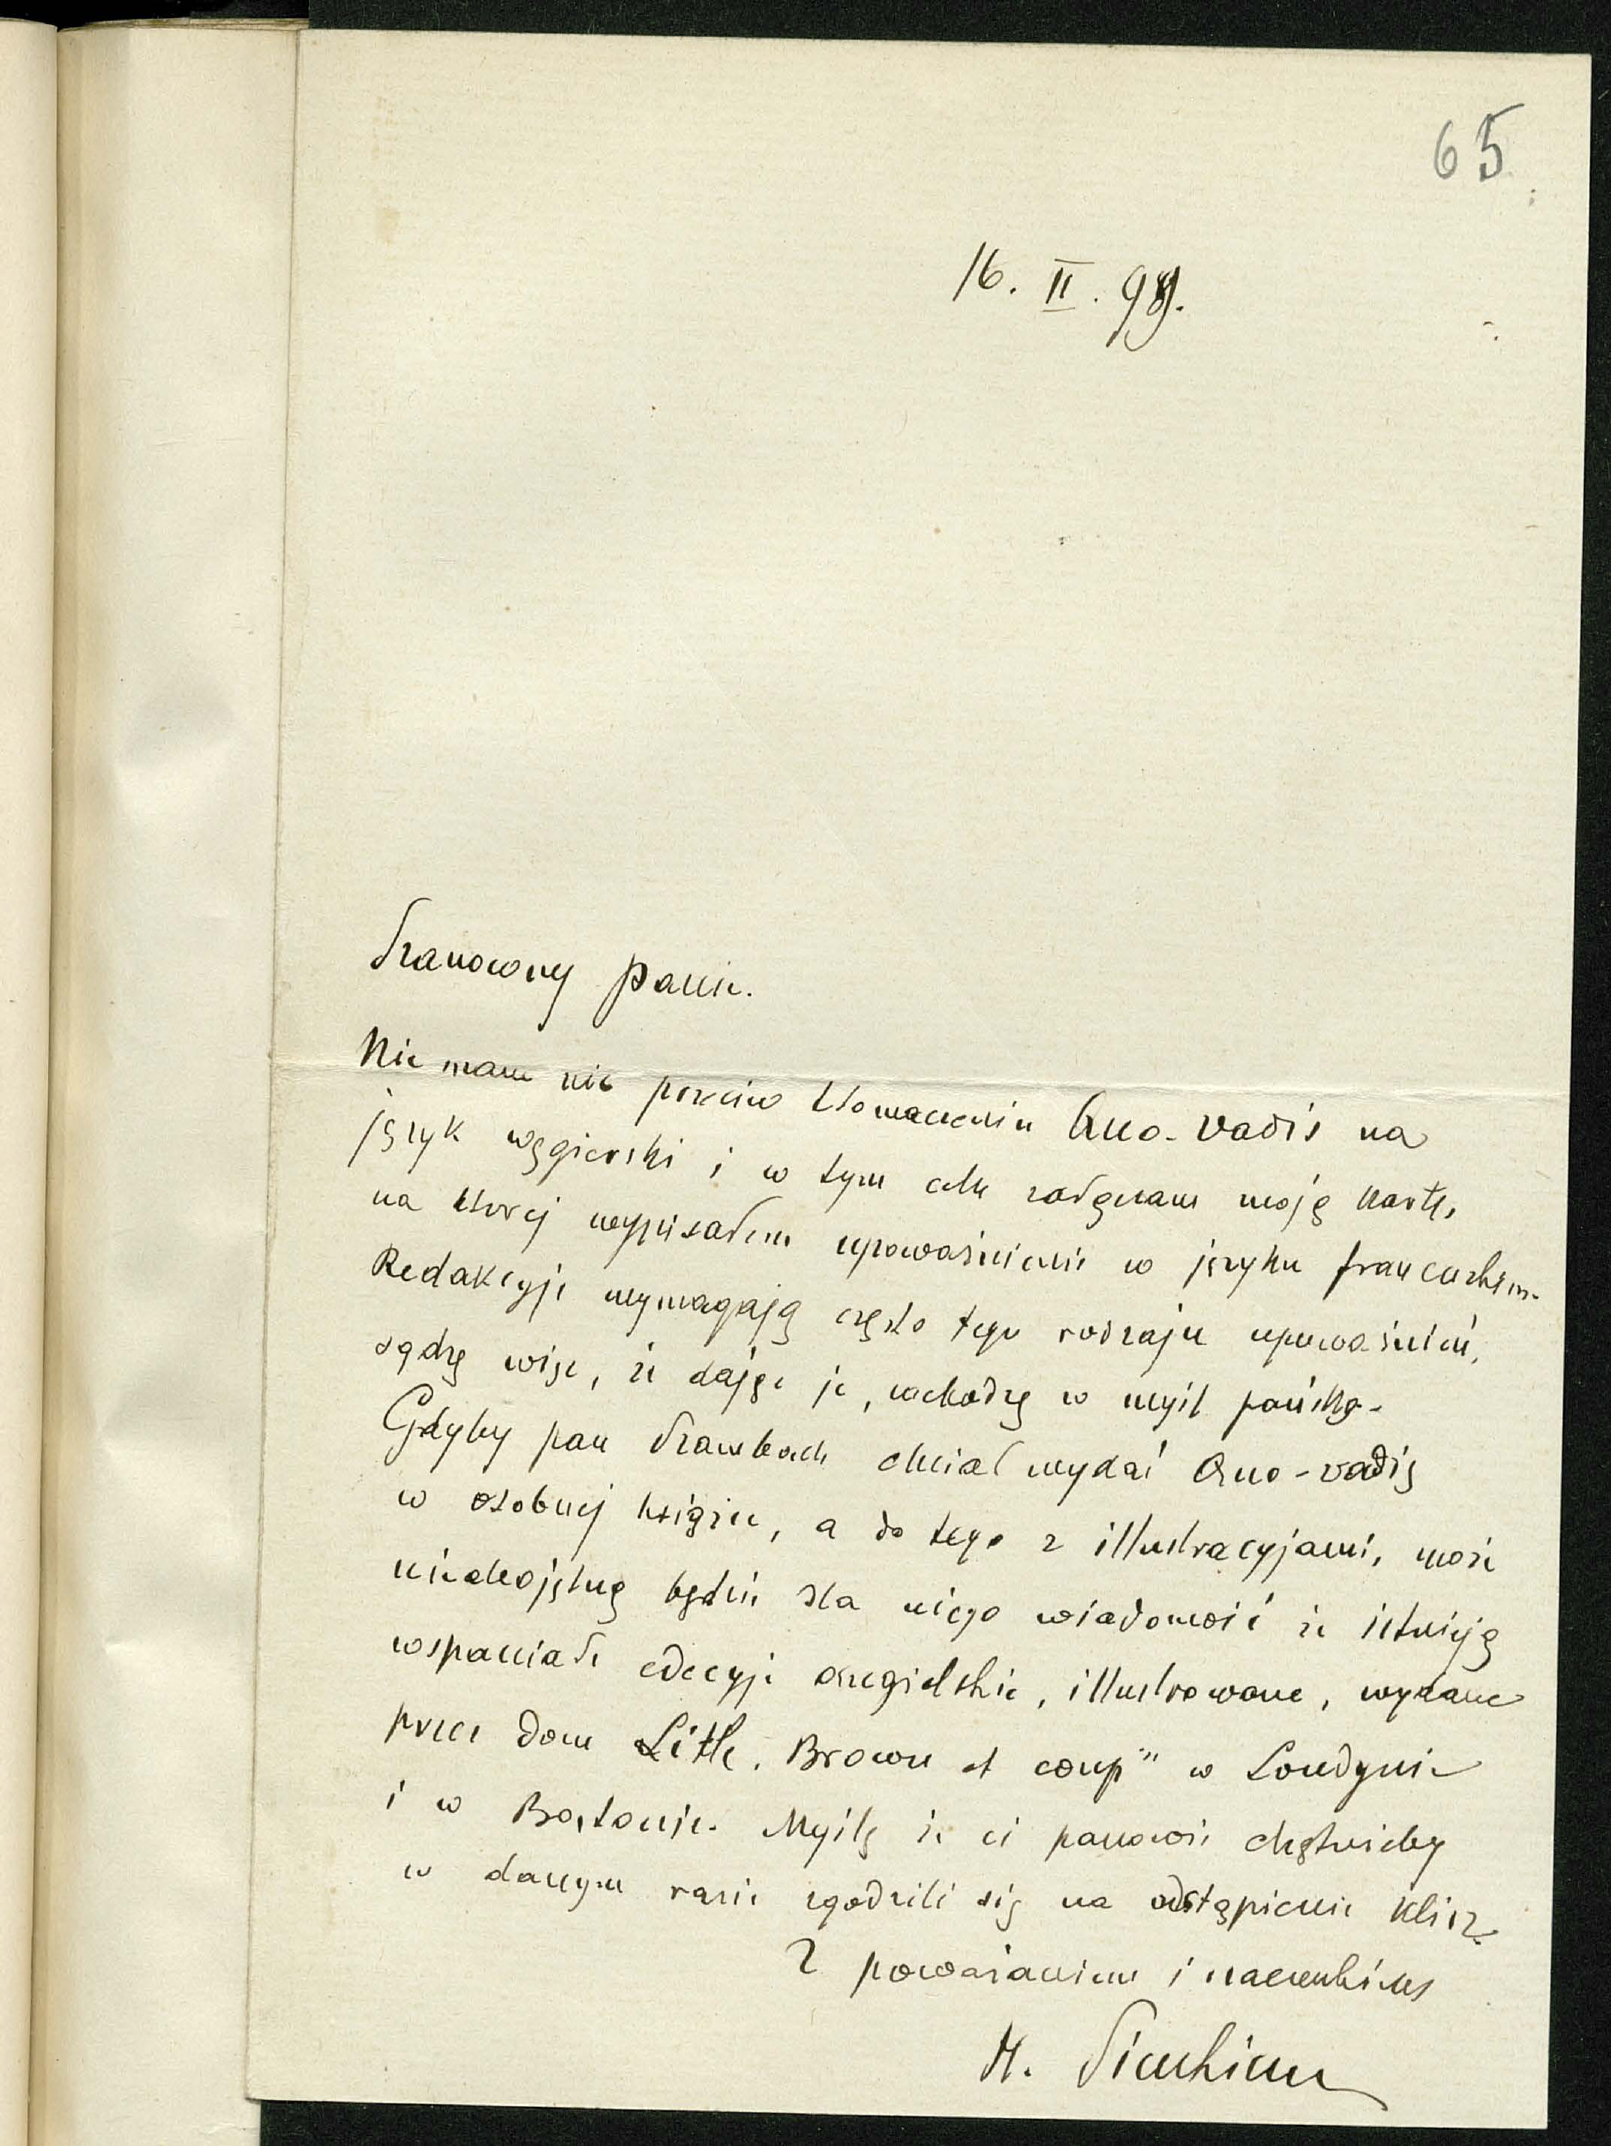 65
16. II. 99.
Szanowny Panie.
Nie mam nic przeciw tłomaczeniu Quo-vadis na
język węgierski i w tym celu załączam moję kartę,
na której wypisałem upoważnienie w języku francuzkim.
Redakcyje wymagają często tego rodzaju upoważnień,
sądzę więc, iż dając je, wchodzę w myśl pańską.
Gdyby pan chciał wydać Quo-vadis
w osobnej księdze, a do tego z illustracyjami, może
nieobojętną będzie dla niego wiadomość iż istnieją
wspaniałe edycyje angielskie, illustrowane, wydane
przez dom Little. Brown et comp" w Londynie
i w Bostonie. Myślę iż ci panowie chętnieby
w danym razie zgodzili się na odstąpienie klisz.
Z poważaniem i szacunkiem
H. Sienkiewicz